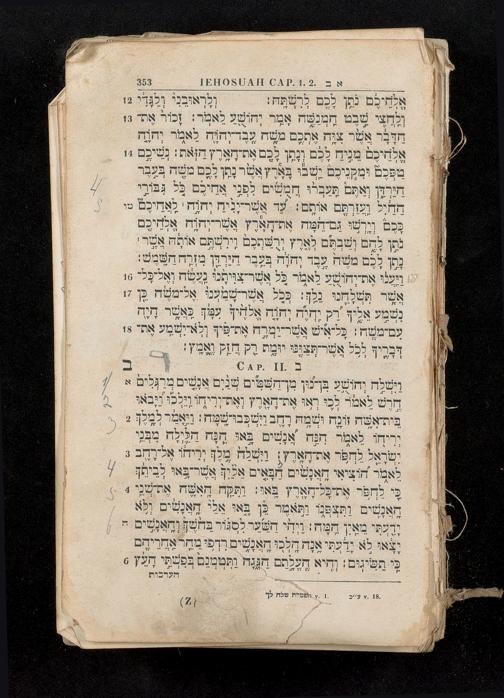 353 IEHOSUAH CAP. 1. 2. א ב
אֱלֹהֵיכֶם נֹתֵן לָכֶם לְרִשְׁתָּהּ׃ וְלָרֽאוּבֵנִי וְלַגָּדִי 12
וְלַחֲצִי שֵׁבֶט הַמְנַשֶּׁה אָמַר יְהוֹשֻׁעַ לֵאמֹר׃ זָכוֹר אֶת־ 13
הַדָּבָר אֲשֶׁר צִוָּה אֶתְכֶם מֹשֶׁה עֶבֶד־יְהוָֹה לֵאמֹר יְהוָֹה
אֱלֹהֵיכֶם מֵנִיחַ לָכֶם וְנָתַן לָכֶם אֶת־הָאָרֶץ הַזֹּאת׃ נְשֵׁיכֶם 14
טַפְּכֶם וּמִקְנֵיכֶם יֵשְׁבוּ בָּאָרֶץ אֲשֶׁר נָתַן לָכֶם מֹשֶׁה בְּעֵבֶר
הַיַּרְדֵּן וְאַתֶּם תַּעַבְרוּ חֲמֻשִׁים לִפְנֵי אֲחֵיכֶם כֹּל גִּבּוֹרֵי
הַחַיִל וַעֲזַרְתֶּם אוֹתָם׃ עַד אֲשֶׁר־יָנִיחַ יְהוָֹה לַאֲחֵיכֶם טו
כָּכֶם וְיָרְשׁוּ גַם־הֵמָּה אֶת־הָאָרֶץ אֲשֶׁר־יְהוָֹה אֱלֹהֵיכֶם
נֹתֵן לָהֶם וְשַׁבְתֶּם לְאֶרֶץ יְרֻשַּׁתְכֶם וִירִשְׁתֶּם אוֹתָהּ אֲשֶׁר
נָתַן לָכֶם מֹשֶׁה עֶבֶד יְהוָֹה בְּעֵבֶר הַיַּרְדֵּן מִזְרַח הַשָּׁמֶשׁ׃
וַיַּעֲנוּ אֶת־יְהוֹשֻׁעַ לֵאמֹר כֹּל אֲשֶׁר־צִוִּיתָנוּ נַעֲשֶׂה וְאֶל־כָּל־ 16
אֲשֶׁר תִּשְׁלָחֵנוּ נֵלֵךְ׃ כְּכֹל אֲשֶׁר־שָׁמַעְנוּ אֶל־מֹשֶׁה כֵּן 17
נִשְׁמַע אֵלֶיךָ רַק יִהְיֶה יְהוָֹה אֱלֹהֶיךָ עִמָּךְ כַּאֲשֶׁר הָיָה
עִם־מֹשֶׁה׃ כָּל־אִישׁ אֲשֶׁר־יַמְרֶה אֶת־פִּיךָ וְלֹא־יִשְׁמַע אֶת־ 18
דְּבָרֶיךָ לְכֹל אֲשֶׁר־תְּצַוֶּנּוּ יוּמָת רַק חֲזַק וֶאֱמָץ׃
ב CAP. II. ב
וַיִּשְׁלַח יְהוֹשֻׁעַ בִּן־נוּן מִן־הַשִּׁטִּים שְׁנַיִם אֲנָשִׁים מְרַגְּלִים א
חֶרֶשׁ לֵאמֹר לְכוּ רְאוּ אֶת־הָאָרֶץ וְאֶת־יְרִיחוֹ וַיֵּלְכוּ וַיָּבֹאוּ
בֵּית־אִשָּׁה זוֹנָה וּשְׁמָהּ רָחָב וַיִּשְׁכְּבוּ־שָׁמָּה׃ וַיֵּאָמַר לְמֶלֶךְ 2
יְרִיחוֹ לֵאמֹר הִנֵּה אֲנָשִׁים בָּאוּ הֵנָּה הַלַּיְלָה מִבְּנֵי
יִשְׂרָאֵל לַחְפֹּר אֶת־הָאָרֶץ׃ וַיִּשְׁלַח מֶלֶךְ יְרִיחוֹ אֶל־רָחָב 3
לֵאמֹר הוֹצִיאִי הָאֲנָשִׁים הַבָּאִים אֵלַיִךְ אֲשֶׁר־בָּאוּ לְבֵיתֵךְ
כִּי לַחְפֹּר אֶת־כָּל־הָאָרֶץ בָּאוּ׃ וַתִּקַּח הָאִשָּׁה אֶת־שְׁנֵי 4
הָאֲנָשִׁים וַתִּצְפְּנוֹ וַתֹּאמֶר כֵּן בָּאוּ אֵלַי הָאֲנָשִׁים וְלֹא
יָדַעְתִּי מֵאַיִן הֵמָּה׃ וַיְהִי הַשַּׁעַר לִסְגּוֹר בַּחֹשֶׁךְ וְהָאֲנָשִׁים ה
יָצָאוּ לֹא יָדַעְתִּי אָנָה הָלְכוּ הָאֲנָשִׁים רִדְפוּ מַהֵר אַחֲרֵיהֶם
כִּי תַשִּׂיגוּם׃ וְהִיא הֶעֱלָתַם הַגָּגָה וַתִּטְמְנֵם בְּפִשְׁתֵּי הָעֵץ 6
הערכות
(Z) הפטרת שלח לך v. 1. ע״כ v. 18.
4
5
1
2
3
4
5
6